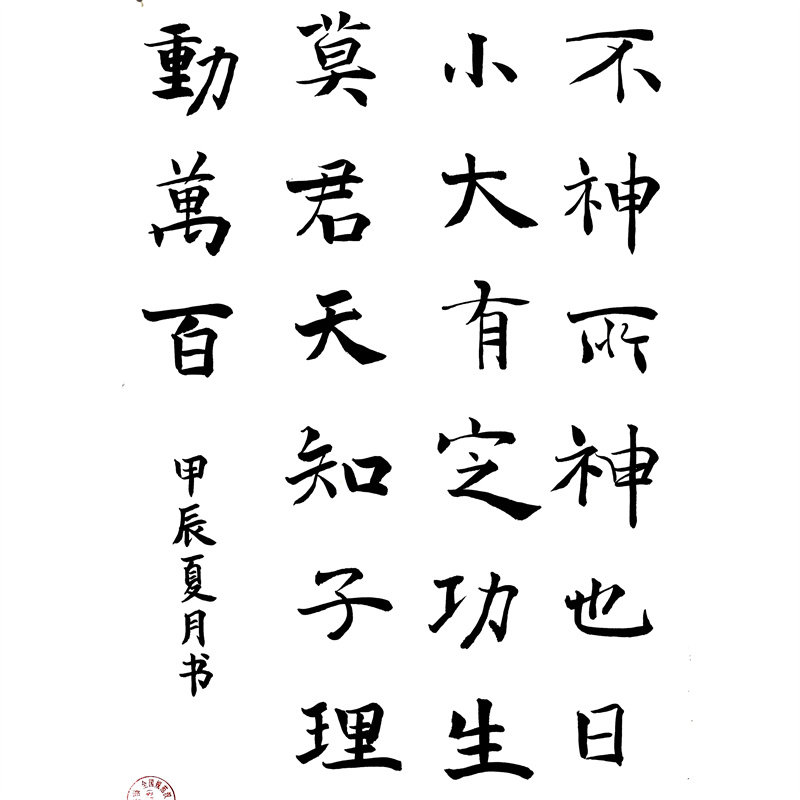 不神所神也日
小大有定功生
莫君天知子理
動萬百
甲辰夏月书